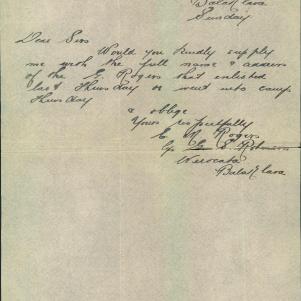 Balaklava
Sunday
Dear Sirs
Would you kindly supply
me with the full name & address
of the E. Rogers that enlisted
last Thursday or went into camp
Thursday
& oblige
Yours respectfully
E. N. Rogers
C/o E. Robinson
Werocata
Balaklava